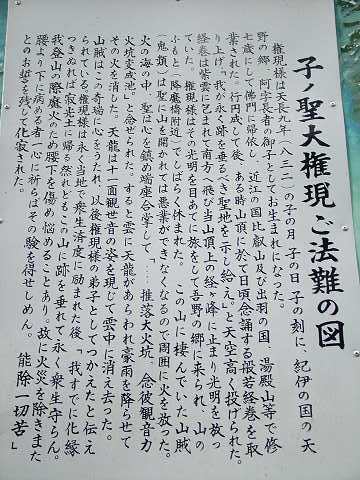 子ノ聖大権現ご法難の図
権現様は天長九年(八三二)の子の月 子の日 子の刻に、紀伊の国の天
野の郷 阿字長者の御子としてお生まれになった。
七歳にして佛門に帰依し、近江の国比叡山及び出羽の国、湯殿山等で修
業された。行円成して後、ある時山頂に於て日頃念誦する般若経巻を取
り上げ「我が永く跡を垂るべき聖地を示し給え。」と天空高く投げられた。
経巻は紫雲に乞まれて南方へ飛び当山頂上の経ヶ峰に止まり光明を放っ
ていた。権現様はその光明を目あてに旅をして吾野の郷に来られ、山の
ふもと(降魔橋附近)でしばらく休まれた。 この山に棲んでいた山賊
(鬼類)は聖に山を開かれては悪業ができなくなるので周囲に火を放った。
火の海の中、聖は心を鎮め端座合掌して「‥‥推落大火坑 念彼観音力
火坑変成池。」と念せられた。すると雲に天龍があらわれ豪雨を降らせて
その火を消した。天龍は十一面観世音の姿を現じて雲中に消え去った。
山賊はこの奇瑞に心をうたれ、以後権現様の弟子としてつかえたと伝え
られている。権現様は永く当地で衆生済度に励まれた後、「我すでに化縁
つきぬれば寂光土に帰る然れどもこの山に跡を垂れて永く衆生守らん。
我登山の際魔火のため腰下を傷め悩めることあり。故に火災を除きまた
腰より下に病める者一心に祈らばその験を得せしめん。 能除一切苦」
とのお誓を残して化寂された。